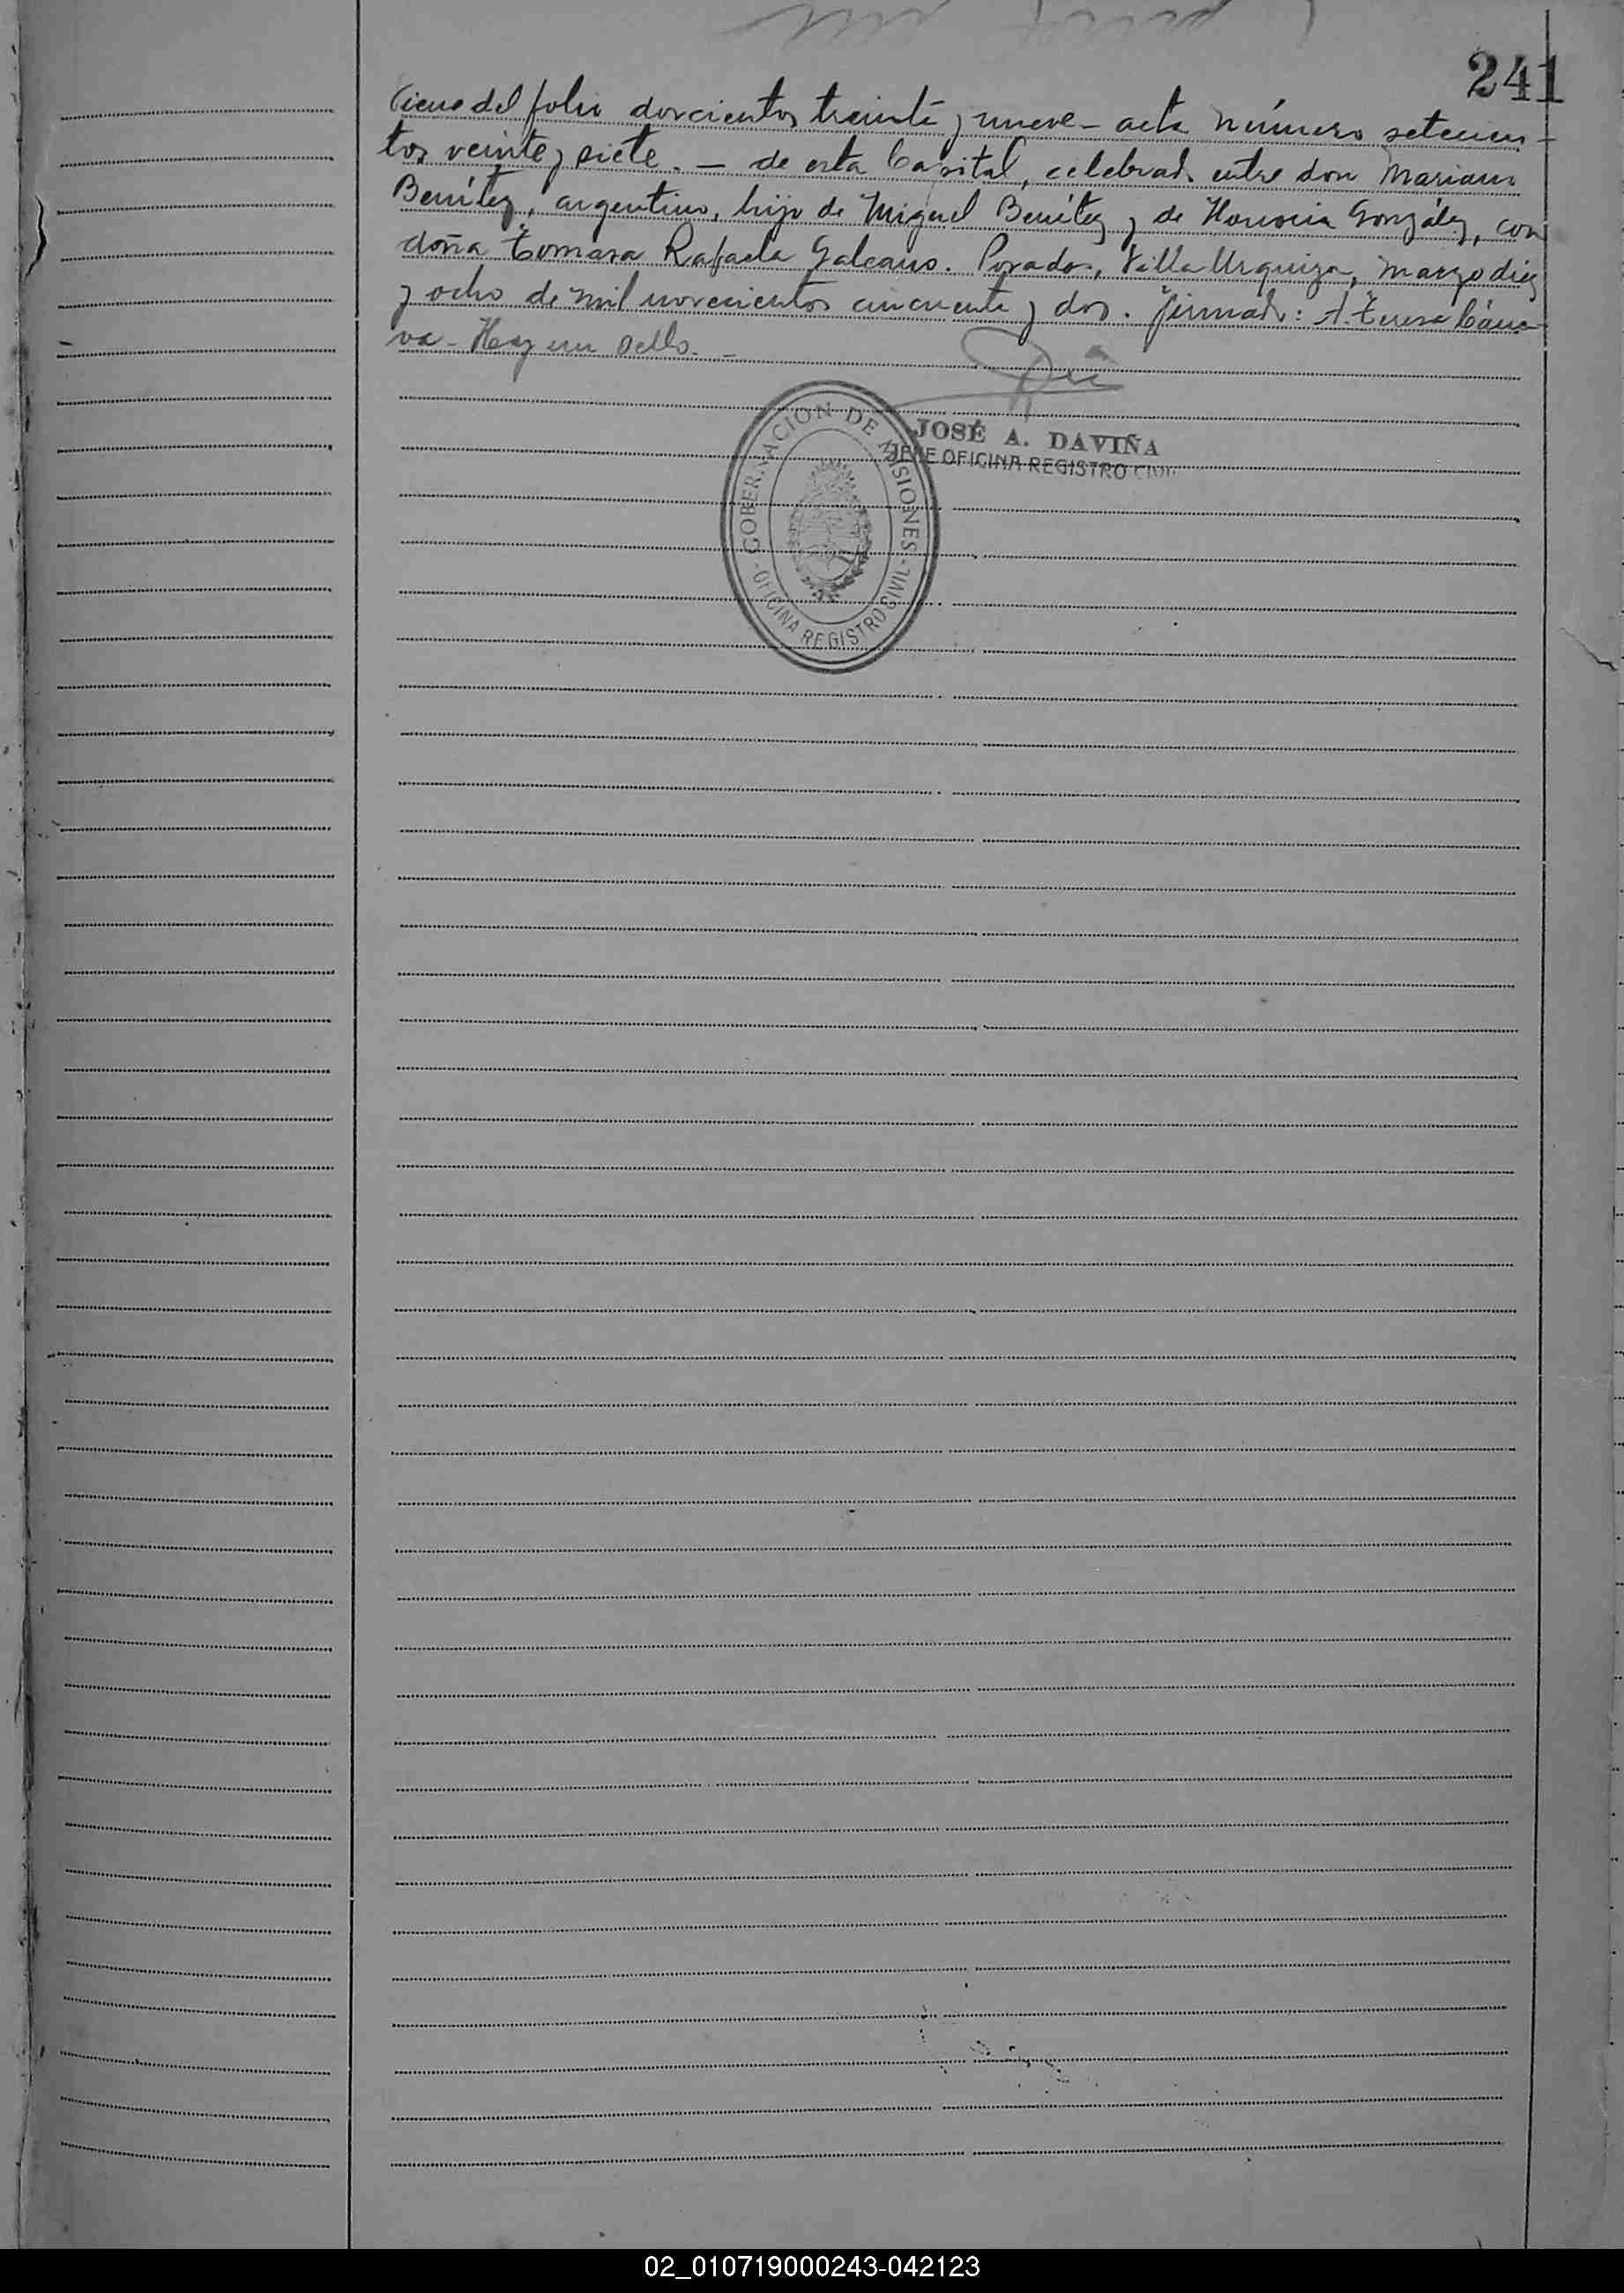 241
Viene del folio doscientos treinta y nueve - acta número setecien-
tos veinte y siete. - de esta Capital, celebrado entre don Mariano
Benítez, argentino, hijo de Miguel Benítez y de Honoria González, con
doña Tomasa Rafaela Galeano. Posadas, Villa Urquiza, marzo diez
y ocho de mil novecientos cincuenta y dos. firmado: A. Teresa
va - Hay un sello. -
JOSÉ A. DAVIÑA
JEFE OFICINA REGISTRO CIVIL
GOBERNACION DE MISIONES
- OFICINA REGISTRO CIVIL -
02_010719000243-042123